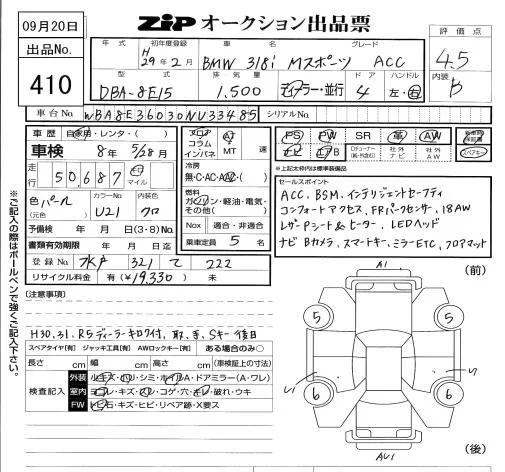 09月20日
ZIP オークション出品票
出品No.
410
年式
初年度登録
車名
グレード
評価点
H
29年2月
BMW 318i Mスポーツ ACC
4.5
型式
排気量
ドア
ハンドル
内装
DBA-8E15
1.500
ディーラー・並行
4
左・右
B
車台No.
WBA8E36030NU33485
シリアルNo.
車歴
自家用・レンタ・( )
車検
8年 5/28月
走行
50,687
マイル
色 パール
(元色)
カラーNo.
U21
内装色
クロ
予備検
年 月 日(3・8)No.
書類有効期限
年 月 日迄
登録No.
水戸 321 て 222
リサイクル料金
有(¥19,330) 未
フロア
コラム
インパネ
AT
MT
速
冷房
無・C・AC・AAC・( )
燃料
ガソリン・軽油・電気・
その他( )
Nox
適合・非適合
乗車定員
5
名
PS
PW
SR
革
AW
ナビ
エアB
社外
ナビ
社外
AW
新車時保証書
スペアキー
※上記太枠内は標準装備品
セールスポイント
ACC、BSM、インテリジェントセーフティ
コンフォートアクセス、FRパークセンサ、18AW
レザーPシート&ヒーター、LEDヘッド
ナビ Bカメラ、スマートキー、ミラーETC、フロアマット
※ご記入の際はボールペンで強くご記入下さい。
[注意事項]
H30.31.R5ディーラーキロク付、取、手、Sキー後日
スペアタイヤ[有] ジャッキ工具[有] AWロックキー[有] ある場合のみ○
長さ cm
幅 cm
高さ cm
(車検証上の寸法)
検査記入
外装
室内
コゲ・穴・キレ・破れ・ウキ
FW
トビ石・キズ・ヒビ・リペア跡・X要ス
(前)
A1
5
5
U1
6
6
AU1
(後)